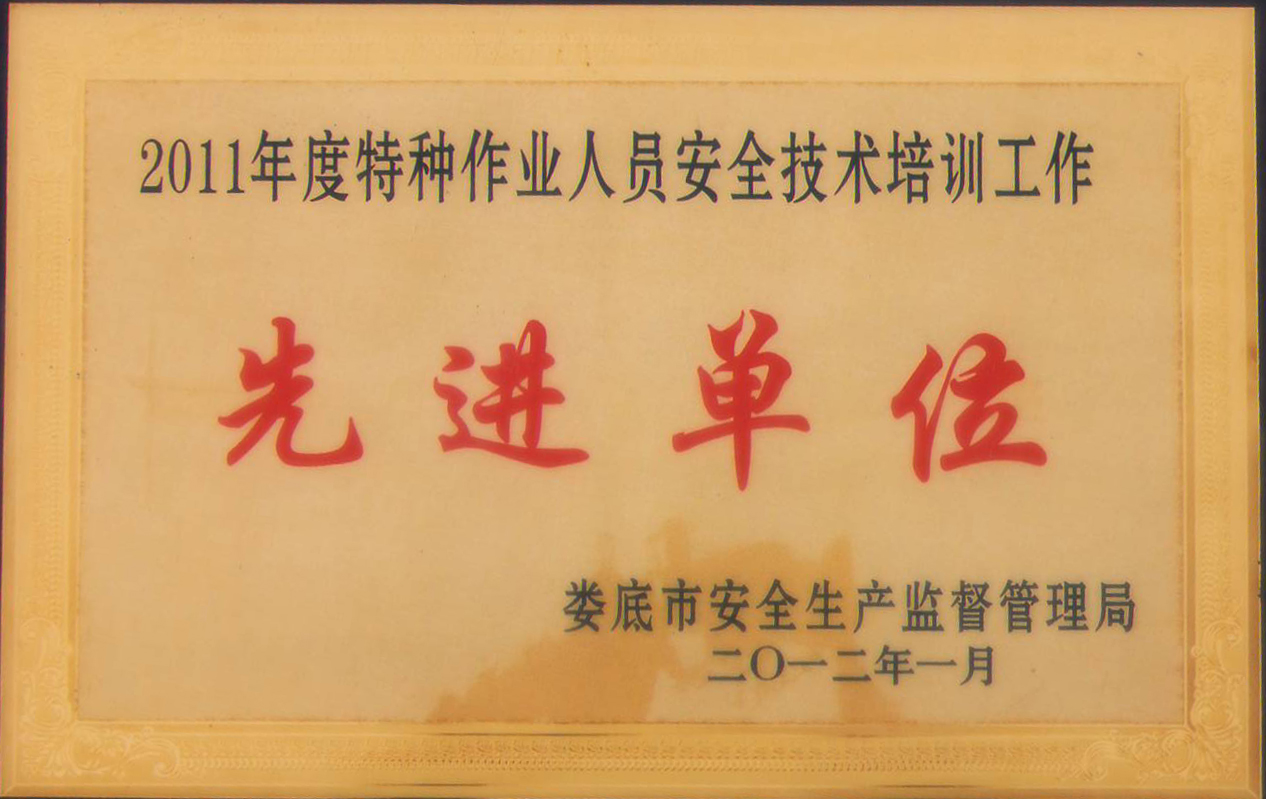 2011年度特种作业人员安全技术培训工作
先进单位
娄底市安全生产监督管理局
二〇一二年一月